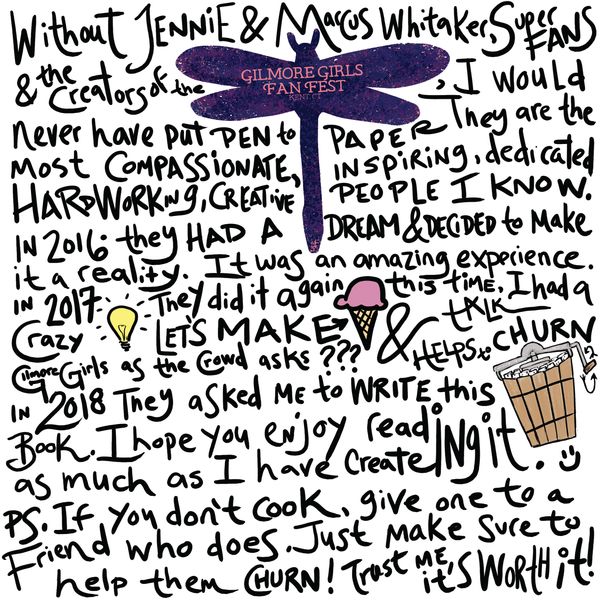 Without JENNiE & Marcus Whitaker, Super FANS
& the Creators of the GILMORE GIRLS FAN FEST KENT CT, I would
never have put PEN to PAPER They are the
most COMPASSIONATE, INSPIRING, dedicated
HARDWORKING, CREATIVE PEOPLE I KNOW.
IN 2016 they HAD A DREAM & DECIDED to Make
it a reality. It was an amazing experience.
IN 2017 They did it again this time, I had a
Crazy LET'S MAKE & talk HELPS to CHURN
Gilmore Girls as the Crowd asks ???
IN 2018 They asked ME to WRITE this
BOOK. I hope you enjoy reading it.
as much as I have created
PS. If you don't COOK, give one to a
Friend who does. Just make Sure to
help them CHURN! Trust ME, it's WORTH it!